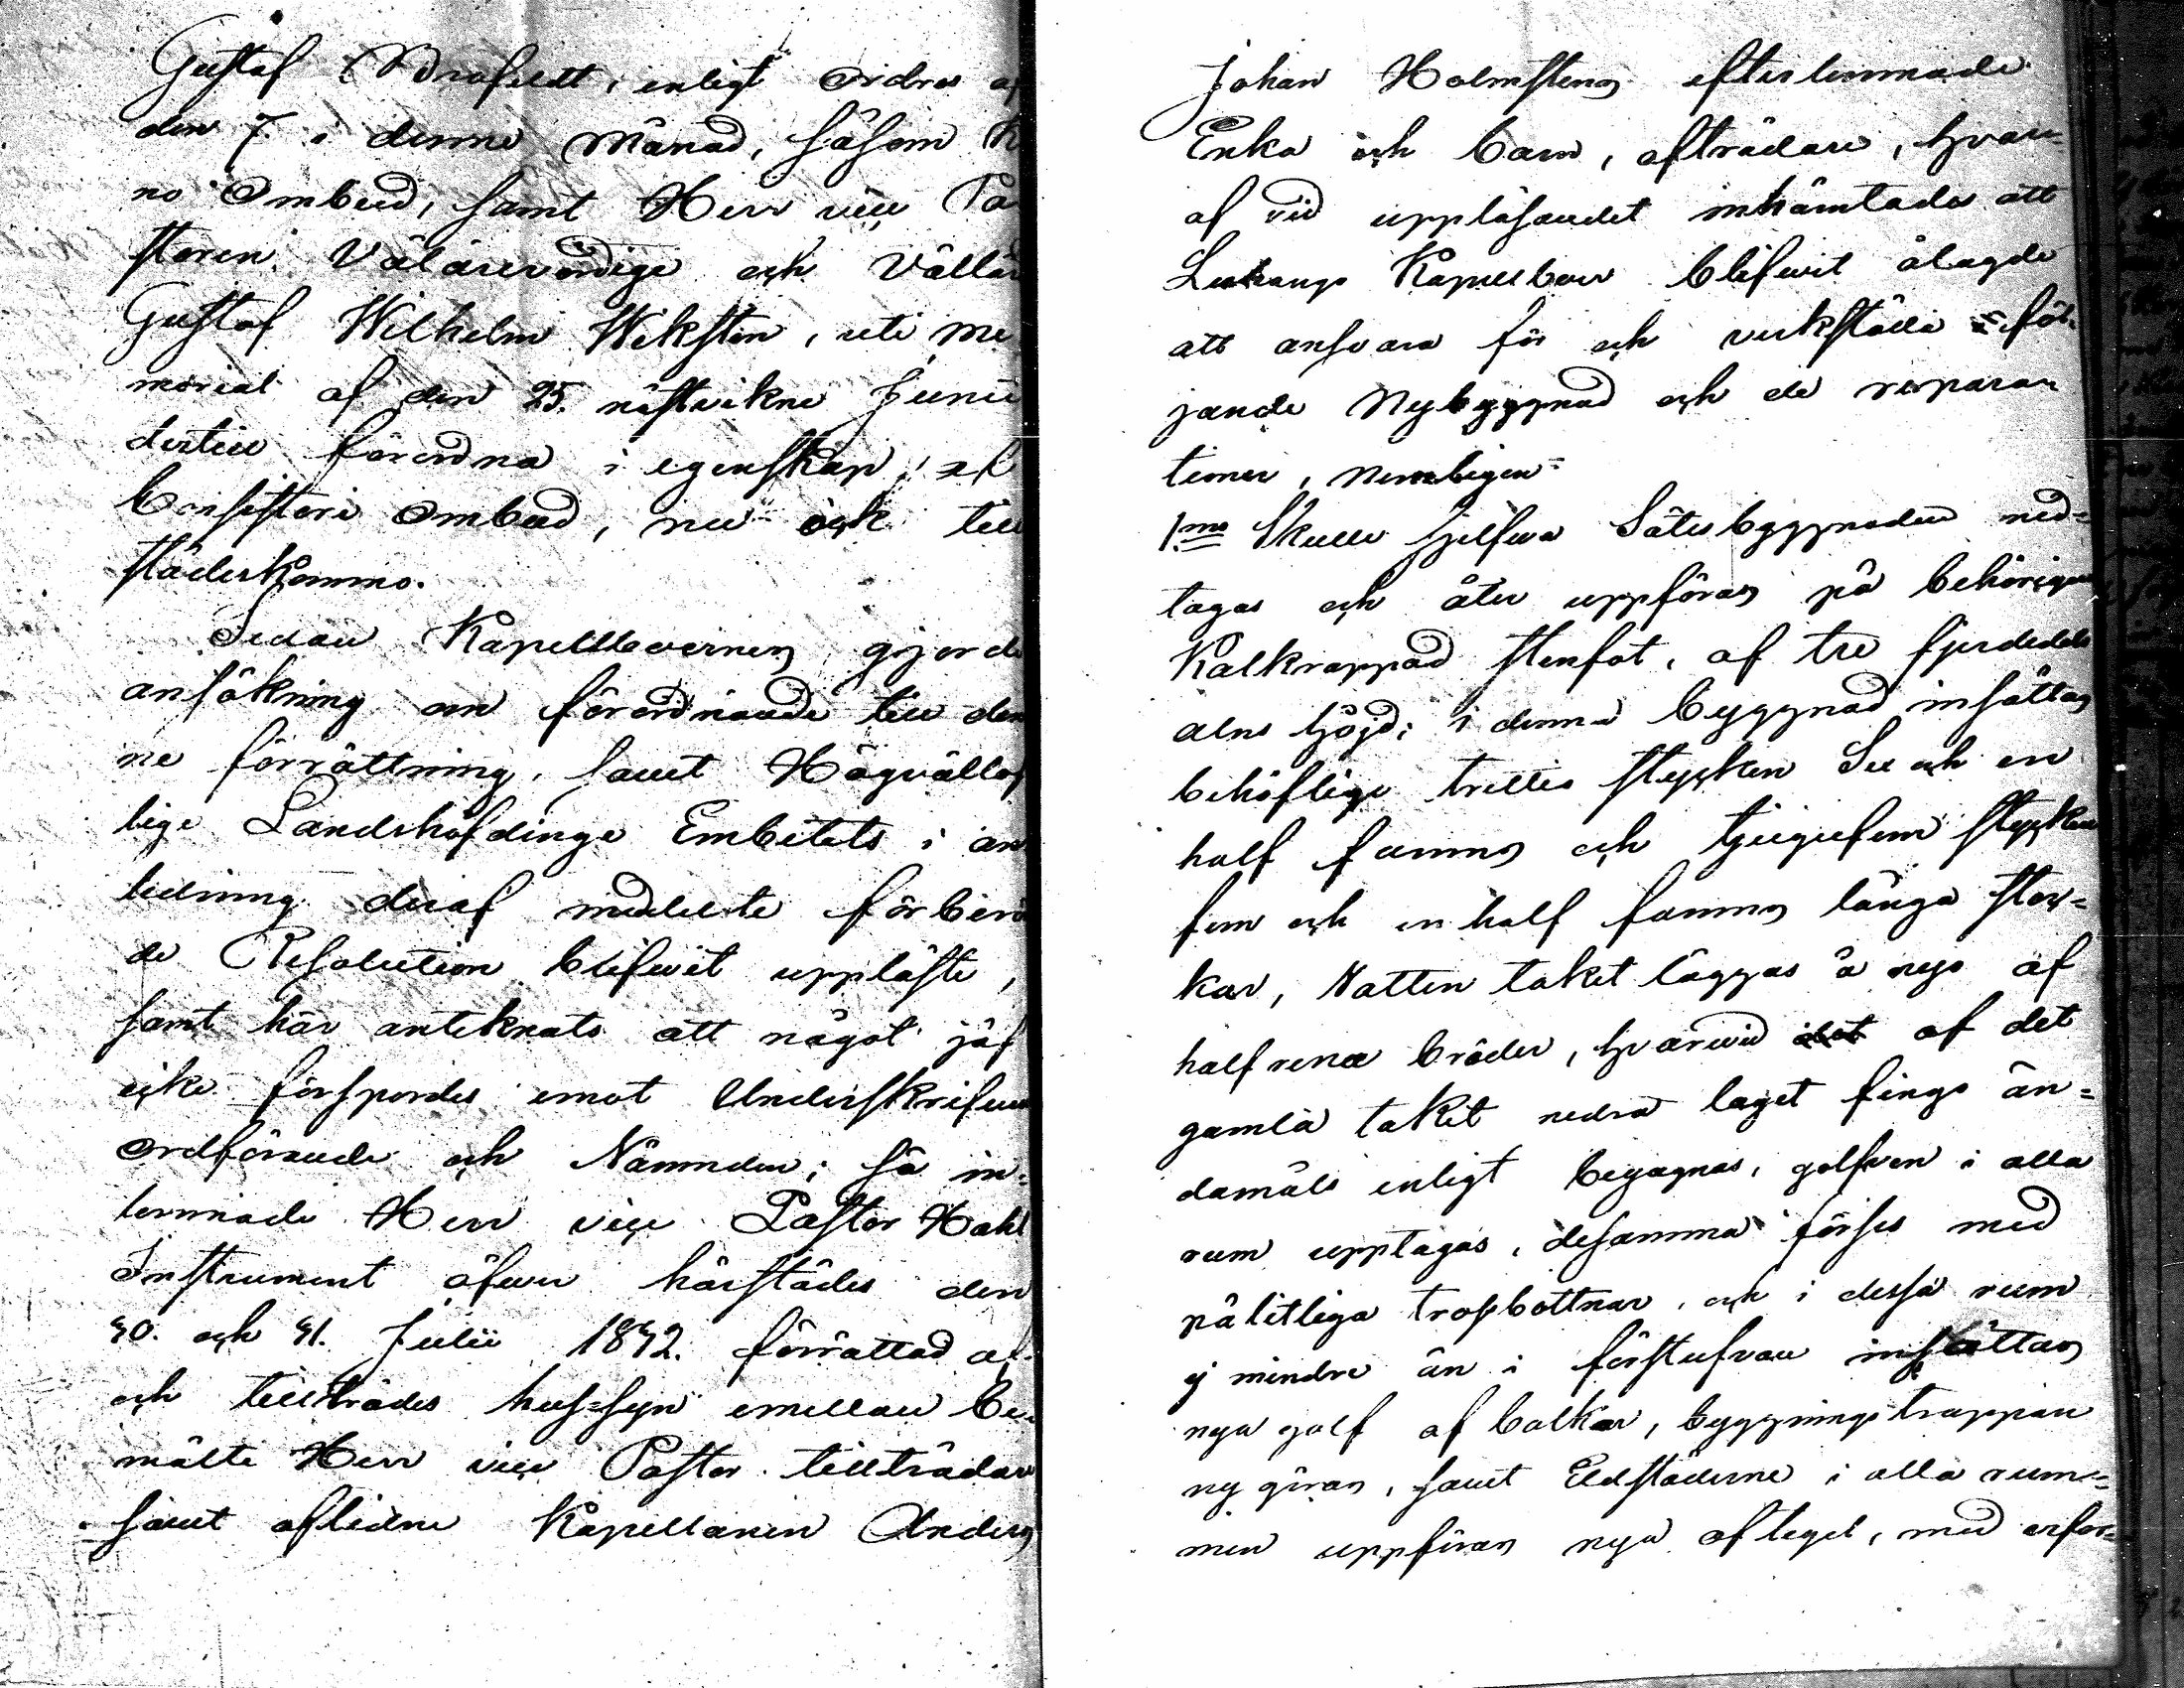 Gustaf enligt ordres af
den 7. i denne Månad, såsom
no Ombud, samt Herr vice Pa
storen Välärevördige och Vällär
Gustaf Wilhelm Weksten, uti Me
morial af den 25. nästvikne Junii
dertill förordna i egenskap af
Consistorii Ombud, nu ock till
städeskommo.
Sedan Kapellboernes gjorde
ansökning om förordnande till den
ne förrättning, samt Högvällof
lige Landshöfdinge Embetets i an
ledning deraf meddelte förberö
de Resolution blifwit uppläste,
samt här anteknats att något jäf
icke förspordes emot Underskrifwen
Ordförande och Nämnden; så in-
lemnade Herr vice Pastor Hahl
Instrument öfwer härstädes den
40. och 41. Julii 1842. förrättad af-
och tillträdes hus-syn emellan be-
mälte Herr vice Pastor tillträdare
samt aflidne Kapellanen Anders
Johan Holmstens efterlemnade
Enka och barn, afträdare, hvar-
af vid uppläsandet inhämtades att
Luhango Kapellboer blifwit ålagde
att ansvara för och verkställa föl-
jande Nybyggnad och de repara-
tioner, Nemligen:
1:mo Skulle sjelfwa Sätesbyggnaden ned-
tagas och åter uppföras på behörigen
Kalkrappad stenfot, af tre fjerdedels
alns höjd; i denna byggnad insättas
behöflige trettio stycken Su och en
half famns och tjugufem stycken
fem och en half famns långa stoc-
kar, Vatten taket läggas å nyo af
halfrena bräder, hvarwid af det
gamla taket nedra laget fingo än-
damåls enligt begagnas, golfven i alla
rum upptagas, desamma förses med
pålitliga trossbottnar, och i dessa rum
ej mindre än i förstufvan insättas
nya golf af balkar, byggningstrappan
ny göras, samt Eldstäderne i alla rum-
men uppföras nya af tegel, med erfor-